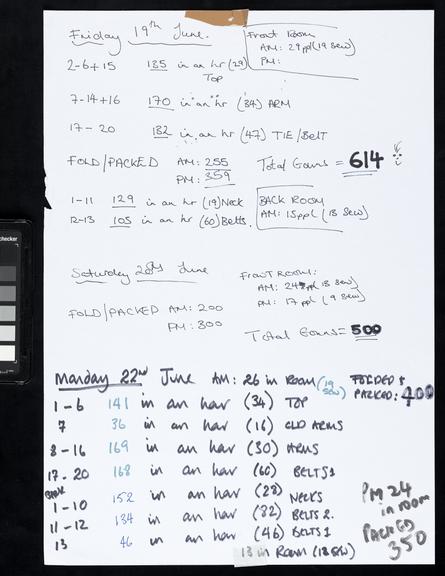 Friday 19th June.
Front Room
AM: 29ppl (19 sew)
PM:
2-6+15 185 in an hr (29)
TOP
7-14+16 170 in an hr (34) ARM
17-20 182 in an hr (47) TIE/Belt
FOLD/PACKED AM: 255
PM: 359
Total Gowns = 614
1-11 129 in an hr (19) Neck
12-13 105 in an hr (60) Belts.
BACK ROOM
AM: 15ppl (13 Sew)
Saturday 20th June
Front Room:
AM: 24ppl (13 Sew)
PM: 17ppl (9 Sew)
FOLD/PACKED AM: 200
PM: 300
Total Gowns = 500
Monday 22nd June AM: 26 in room (19 sew) FOLDED &
PACKED: 400
1-6 141 in an har (34) TOP
7 36 in an har (16) OLD ARMS
8-16 169 in an har (30) ARMS
17-20 168 in an har (60) BELTS 1
BACK
1-10 152 in an har (28) NECKS
11-12 134 in an har (32) BELTS 2.
13 46 in an har (46) BELTS 1
13 in Room (13 SEW)
PM 24
in room
PACKED
350